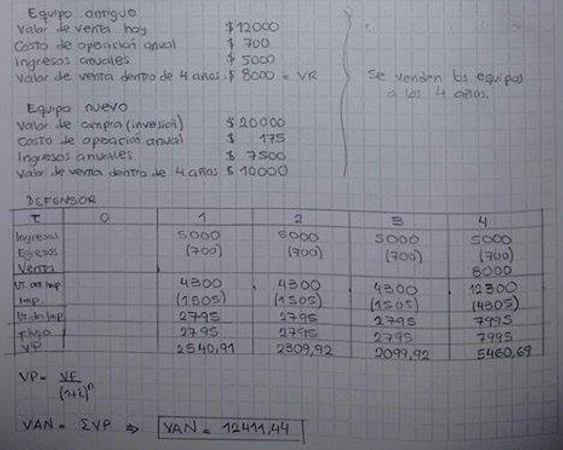 Equipo antiguo
Valor de venta hoy $12000
Costo de operación anual $ 700
Ingresos anuales $ 5000
Valor de venta dentro de 4 años $ 8000 = VR
Se venden los equipos
a los 4 años.
Equipo nuevo
Valor de compra (inversión) $20000
Costo de operación anual $ 175
Ingresos anuales $ 7500
Valor de venta dentro de 4 años $ 10000
DEFENSOR
T 0 1 2 3 4
Ingresos 5000 5000 5000 5000
Egresos (700) (700) (700) (700)
Venta 8000
UT. ant Imp 4300 4300 4300 12300
Imp. (1505) (1505) (1505) (4305)
UT. des Imp 2795 2795 2795 7995
Flujo 2795 2795 2795 7995
VP 2540,91 2309,92 2099,92 5460,69
VP = VF
(1+i)^n
VAN = ΣVP ⇒ VAN = 12411,44